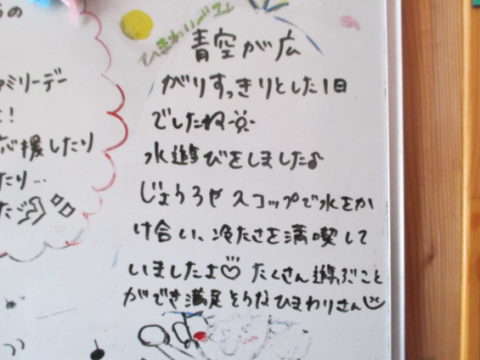 ミリーデー
応援したり
たり…
青空が広
がりすっきりとした1日
でしたね
水遊びをしました♪
じょうろやスコップで水をか
け合い、冷たさを満喫して
いましたよ♡ たくさん遊ぶこと
ができ満足そうなひまわりさん